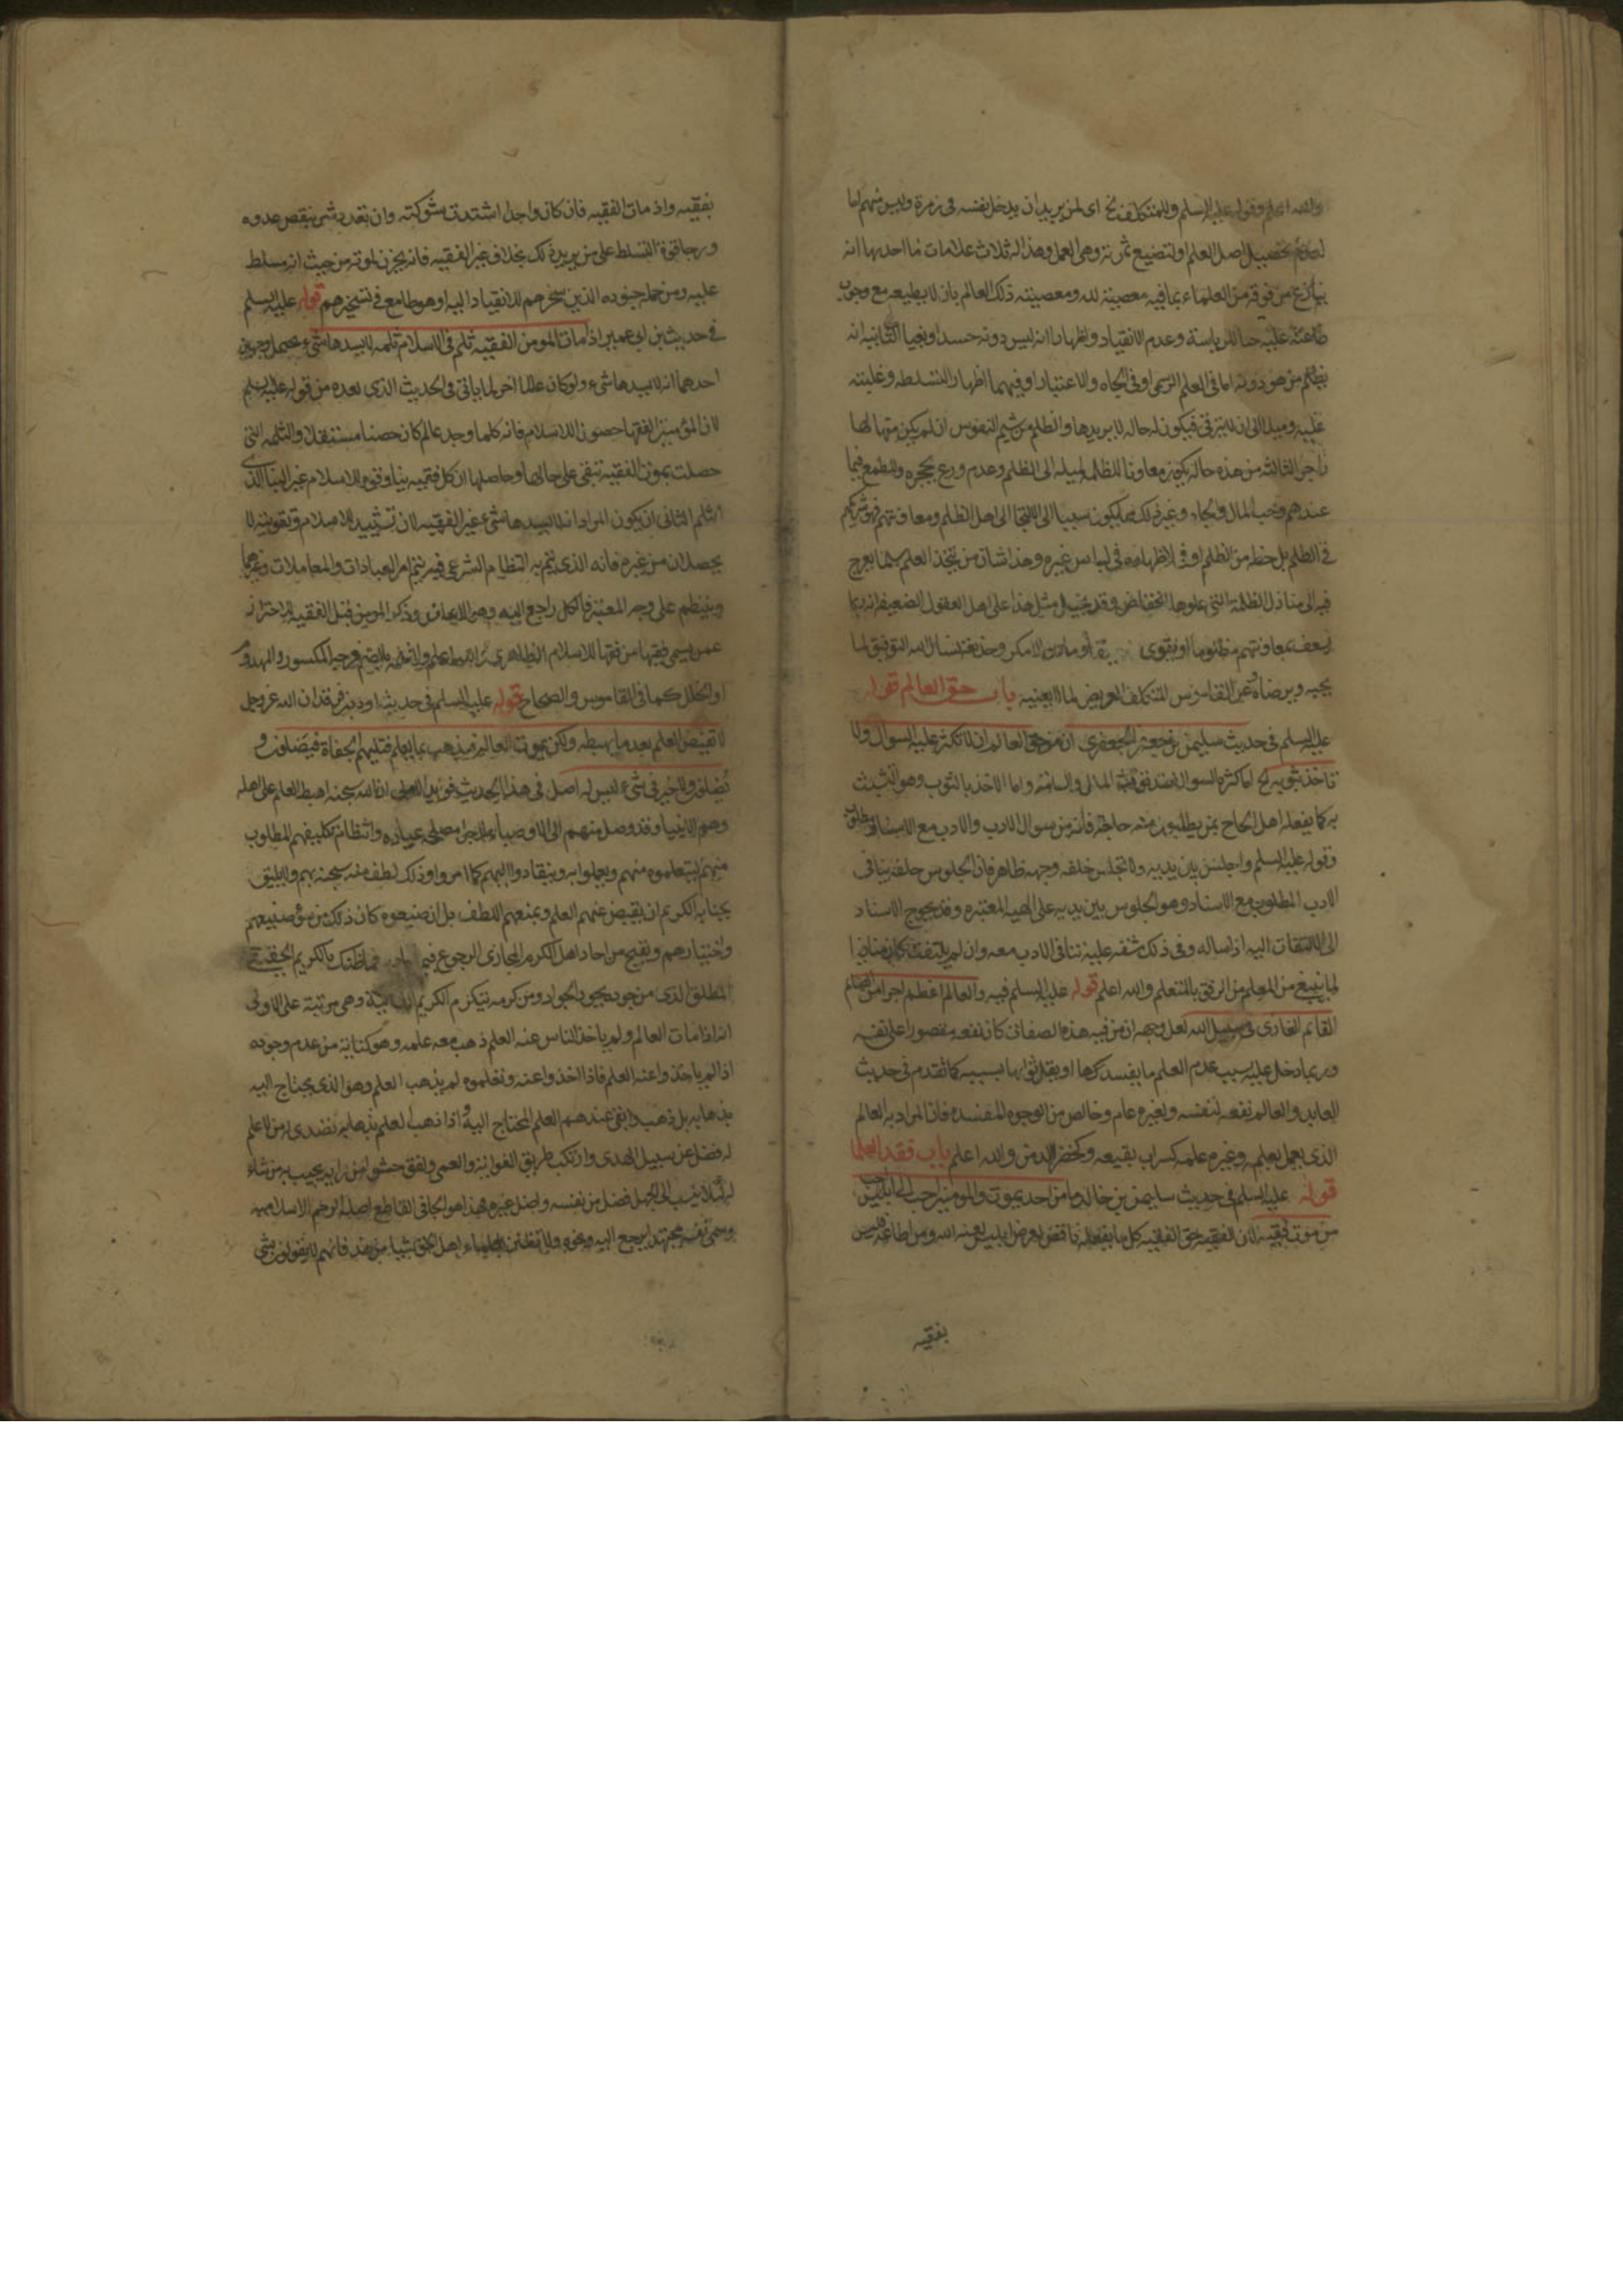 والله اعلم وقوله عليه السلم وللمتكلف الخ اى لمن يريد ان يدخل نفسه فى زمرة وليس منهم اما
لعدم تحصيل اصل العلم او لتضييع ثمرته وهى العمل وهذا له ثلاث علامات احديها انه
ينازع من فوقه من العلماء بما فيه معصية لله ومعصيته ذلك العالم بان لا يطيعه مع وجوب
طاعته عليه حبا للرياسة وعدم الانقياد واظهارا انه ليس دونه حسدا وبغيا الثانية انه
يظلم من هو دونه اما فى العلم الرسمى او فى الجاه والاعتبار او فيهما اظهارا لتسلطه وغلبته
عليه وميلا الى ان لا يترقى فيكون له حالة لا يريدها والظلم من شيم النفوس ان لم يكن منها لها
زاجر الثالثة من هذه حاله يكون معاونا للظلمة لميله الى الظلم وعدم ورع يحجره وللطمع فيما
عندهم وحب المال والجاه وغير ذلك فيكون سببا الى الالتجا الى اهل الظلم ومعاونتهم فهو شريكهم
فى الظلم بل حظه من الظلم اوفر لاظهاره فى لباس غيره وهذا شان من يتخذ العلم سلما يعرج
فيه الى منازل الظلمة التى علوها انخفاض وقد يخيل مثل هذا على اهل العقول الضعيفة انه ربما
يسعف بمعاونتهم مظلوما او يقوى نسال الله التوفيق لما
يحبه ويرضاه وعن القاموس المتكلف العريض لما لا يعنيه باب حق العالم قوله
عليه السلم فى حديث سليمن بن جعفر الجعفرى ان من حق العالم ان لا تكثر عليه السوال ولا
تاخذ بثوبه الخ اما كثرة السوال واما الاخذ بالثوب وهو التشبث
به كما يفعله اهل الحاح بمن يطلبون منه حاجة فانه من سوال الادب والادب مع الاستاد مطلوب
وقوله عليه السلم واجلس بين يديه ولا تجلس خلفه وجهه ظاهر فان الجلوس خلفه ينافى
الادب المطلوب مع الاستاد وهو الجلوس بين يديه على الهيئة المعتبره وقد يحوج الاستاد
الى الالتفات اليه اذا ساله وفى ذلك مشقه عليه تنافى الادب معه وان لم يلتفت كان منافيا
لما ينبغى من المعلم من الرفق بالمتعلم والله اعلم قوله عليه السلم فيه والعالم اعظم اجرا من الصائم
القائم الغازى فى سبيل الله لعل وجهه ان من فيه هذه الصفات كان نفعه مقصورا على نفسه
وربما دخل عليه بسبب عدم العلم ما يفسدها او يقلل ثوابها بسببه كما تقدم فى حديث
العابد والعالم نفعه لنفسه ولغيره عام وخالص من الوجوه المفسده فان المراد به العالم
الذى يعمل بعلمه وغيره علمه كسراب بقيعه وكخضرا الدمن والله اعلم باب فقد العلما
قوله عليه السلم فى حديث سليمن بن خالد ما من احد يموت من المومنين احب الى ابليس
من موت فقيه لان الفقيه حق الفقيه كل ما يفعله ناقض لغرض ابليس لعنه الله ومن اطاعه فليس
بفقيه
بفقيه واذ مات الفقيه فان كان واحدا اشتدت شوكته وان تعدد شمر بنقص عدوه
ورجا قوة التسلط على من يريد ذلك بخلاف غير الفقيه فانه يحزن لموته من حيث انه مسلط
عليه ومن جمله جنوده الذين سخرهم للانقياد اليه او هو طامع فى تسخيرهم قوله عليه السلم
فى حديث بن ابى عمير اذا مات المومن الفقيه ثلم فى الاسلام ثلمه لا يسدها شىء يحتمل وجهين
احدهما انه لا يسدها شىء ولو كان عالما اخر لما ياتى فى الحديث الذى بعده من قوله عليه السلم
لان المؤمنين الفقها حصون الاسلام فانه كلما وجد عالم كان حصنا مستقلا والثلمه التى
حصلت بموت الفقيه تبقى على حالها وحاصلها ان كل فقيه بناء وقوام للاسلام غير البنا الذى
انثلم الثانى ان يكون المراد انه لا يسدها شىء غير الفقيه لان تشييد الاسلام وتقويته لا
يحصلان من غيره فانه الذى يتم به النظام الشرعى فبه يتم امر العبادات والمعاملات وغيرهما
وينتظم على وجه المعتبر فالكل راجع اليه وهو الايمان وذكر المومن قبل الفقيه للاحتراز
عمن يسمى فقيها من فقها الاسلام الظاهرى والله اعلم والثلمه بالضم فرجه المكسور والمهدوم
او الخلل كما فى القاموس والصحاح قوله عليه السلم فى حديث داود بن فرقد ان الله عز وجل
لا يقبض العلم بعد ما يهبطه ولكن يموت العالم فيذهب بما يعلم فتليهم الجفاة فيضلون و
يُضلون ولا خير فى شىء ليس له اصل فى هذا الحديث ان الله سبحنه اهبط العلم على اهله
وهم الانبيا وقد وصل منهم الى الاوصياء لاجل مصلحه عباده وانتظام تكليفهم المطلوب
منهم ليتعلموه منهم ويعملوا به وينقادوا اليهم كما امروا وذلك لطف منه سبحنه بهم ولا يليق
بجنابه الكريم ان يقبض عنهم العلم ويمنعهم اللطف بل ان ضيعوه كان ذلك من سوء صنيعهم
واختيارهم ويقبح من احاد اهل الكرم المجازى الرجوع فيما فما ظنك بالكريم الحقيقى
المطلق الذى من جوده يجود الجواد ومن كرمه يتكرم الكريم الثانية وهى مرتبة على الاولى
انه اذا مات العالم ولم ياخذ الناس عنه العلم ذهب معه علمه وهو كناية من عدم وجوده
اذا لم ياخذوا عنه العلم فاذا اخذوا عنه وتعلموه لم يذهب العلم وهو الذى يحتاج اليه
بذهابه بل ذهب وبقى عندهم العلم المحتاج اليه واذا ذهب العلم بذهابه تصدى له من لا علم
له فضل عن سبيل الهدى وارتكب طريق الغواية والعمى ولفق حشوا من رايه يجيب به من شاء
له لئلا ينسب الى الجهل فضل من نفسه واضل غيره فهذا هو الجافى القاطع اصله الرحم الاسلاميه
وسمى نفسه مجتهدا يرجع اليه ونحوه ولا تظنن بعلماء اهل الحق شيئا من هذا فانهم لا يقولون بشى